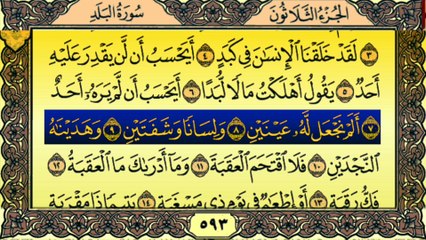 الجزء الثلاثون سورة البلد
٣ لَقَدْ خَلَقْنَا الْإِنسَٰنَ فِي كَبَدٍ ٤ أَيَحْسَبُ أَن لَّن يَقْدِرَ عَلَيْهِ
أَحَدٌ ٥ يَقُولُ أَهْلَكْتُ مَالًا لُّبَدًا ٦ أَيَحْسَبُ أَن لَّمْ يَرَهُ أَحَدٌ
٧ أَلَمْ نَجْعَل لَّهُ عَيْنَيْنِ ٨ وَلِسَانًا وَشَفَتَيْنِ ٩ وَهَدَيْنَٰهُ
النَّجْدَيْنِ ١٠ فَلَا اقْتَحَمَ الْعَقَبَةَ ١١ وَمَا أَدْرَىٰكَ مَا الْعَقَبَةُ ١٢
فَكُّ رَقَبَةٍ ١٣ أَوْ إِطْعَٰمٌ فِي يَوْمٍ ذِي مَسْغَبَةٍ ١٤ يَتِيمًا ذَا مَقْرَبَةٍ
٥٩٣